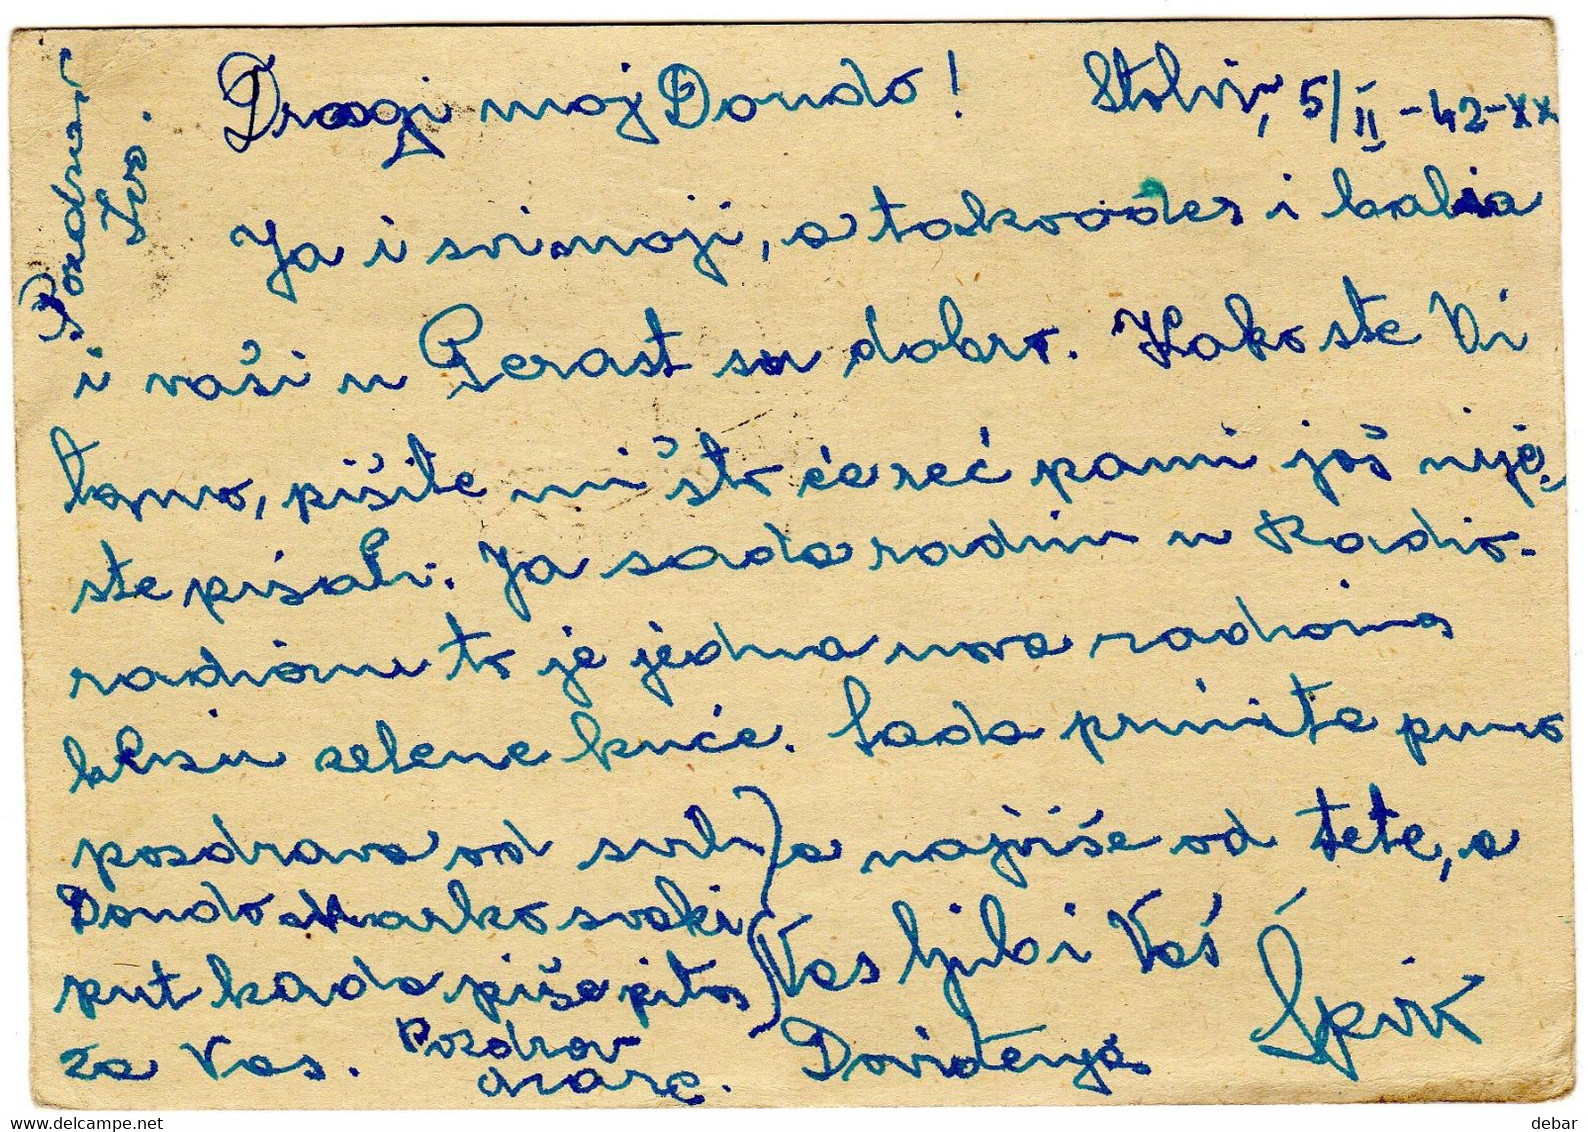 Dragi moj Dondo! Stoliv, 5/II-42-XX
Ja i svi moji, a takvođer i baba
i vaši u Perast su dobro. Kako ste Vi
tamo, pišite mi što će reć pami još nije-
ste pisali. Ja sada radim u Radio-
radioni to je jedna nova radiona
blizu zelene kuće. Sada primite puno
pozdrava od svih a najviše od tete, a
Dondo Marko svaki
put kada piše pita
za Vas.
Vas ljubi Vaš
Doviđenja Špik
Pozdrav
Mare.
Pozdravi
Ivo.
www.delcampe.net
debar